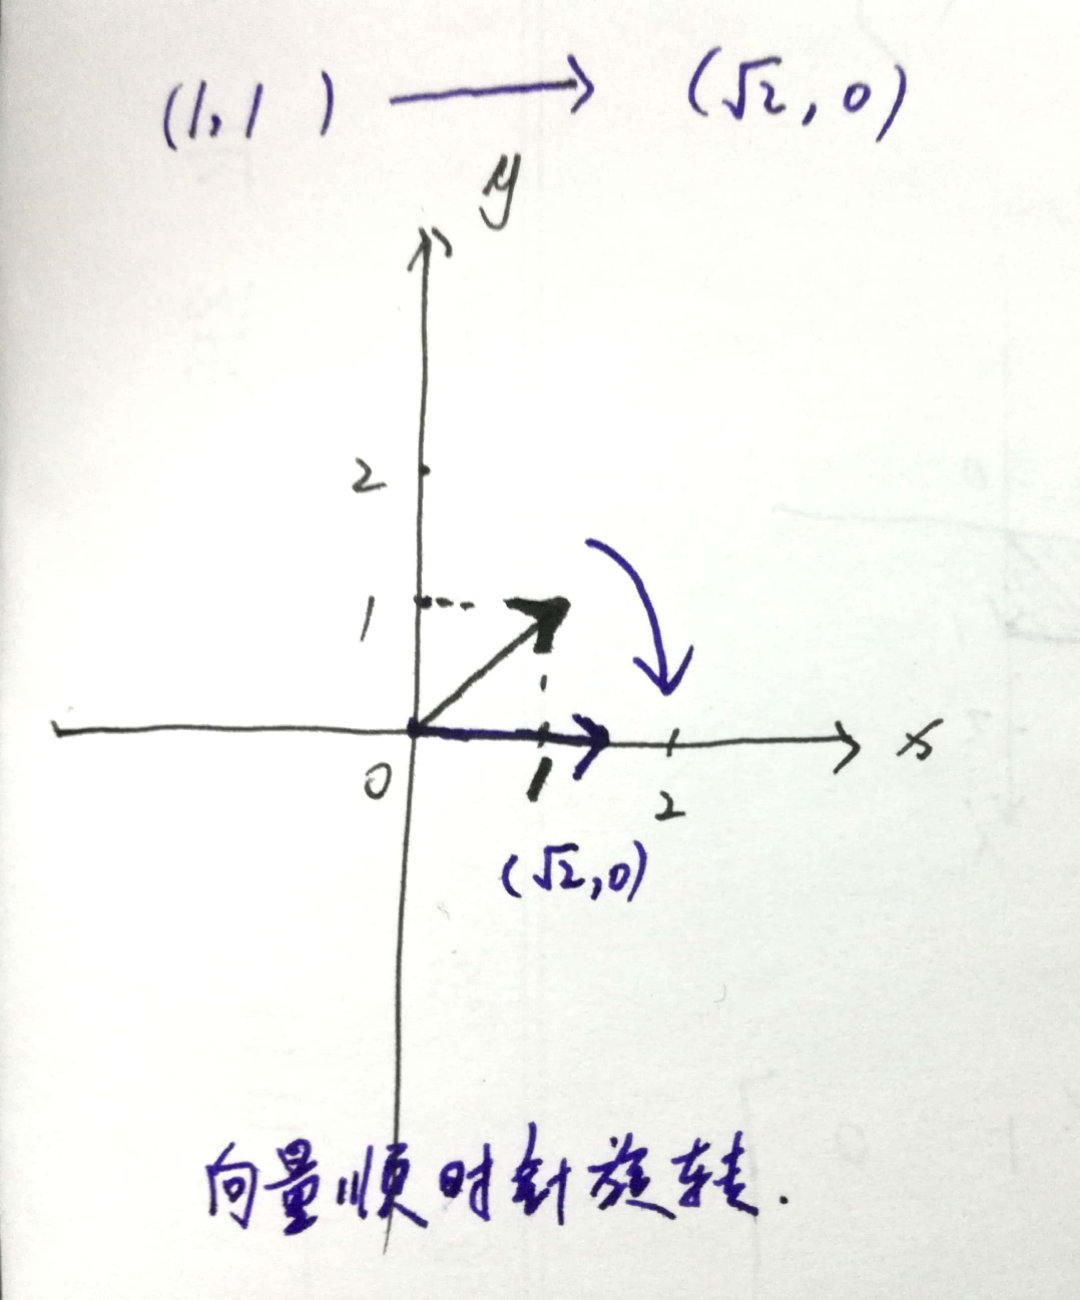 (1,1) → (√2,0)
y
2
1
x
0
1
2
(√2,0)
向量顺时针旋转.